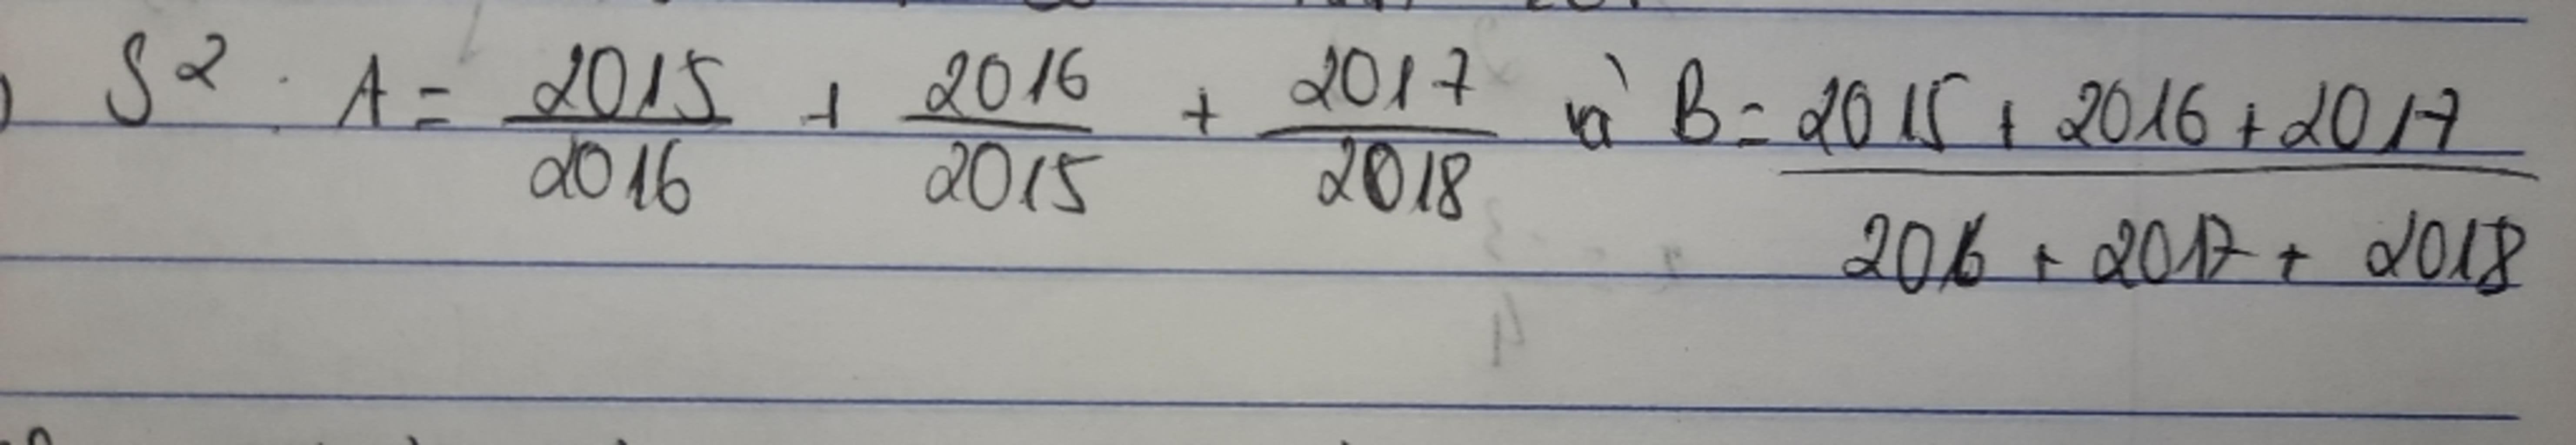 ) S² : A = 2015/2016 + 2016/2015 + 2017/2018 và B = (2015 + 2016 + 2017)/(2016 + 2017 + 2018)